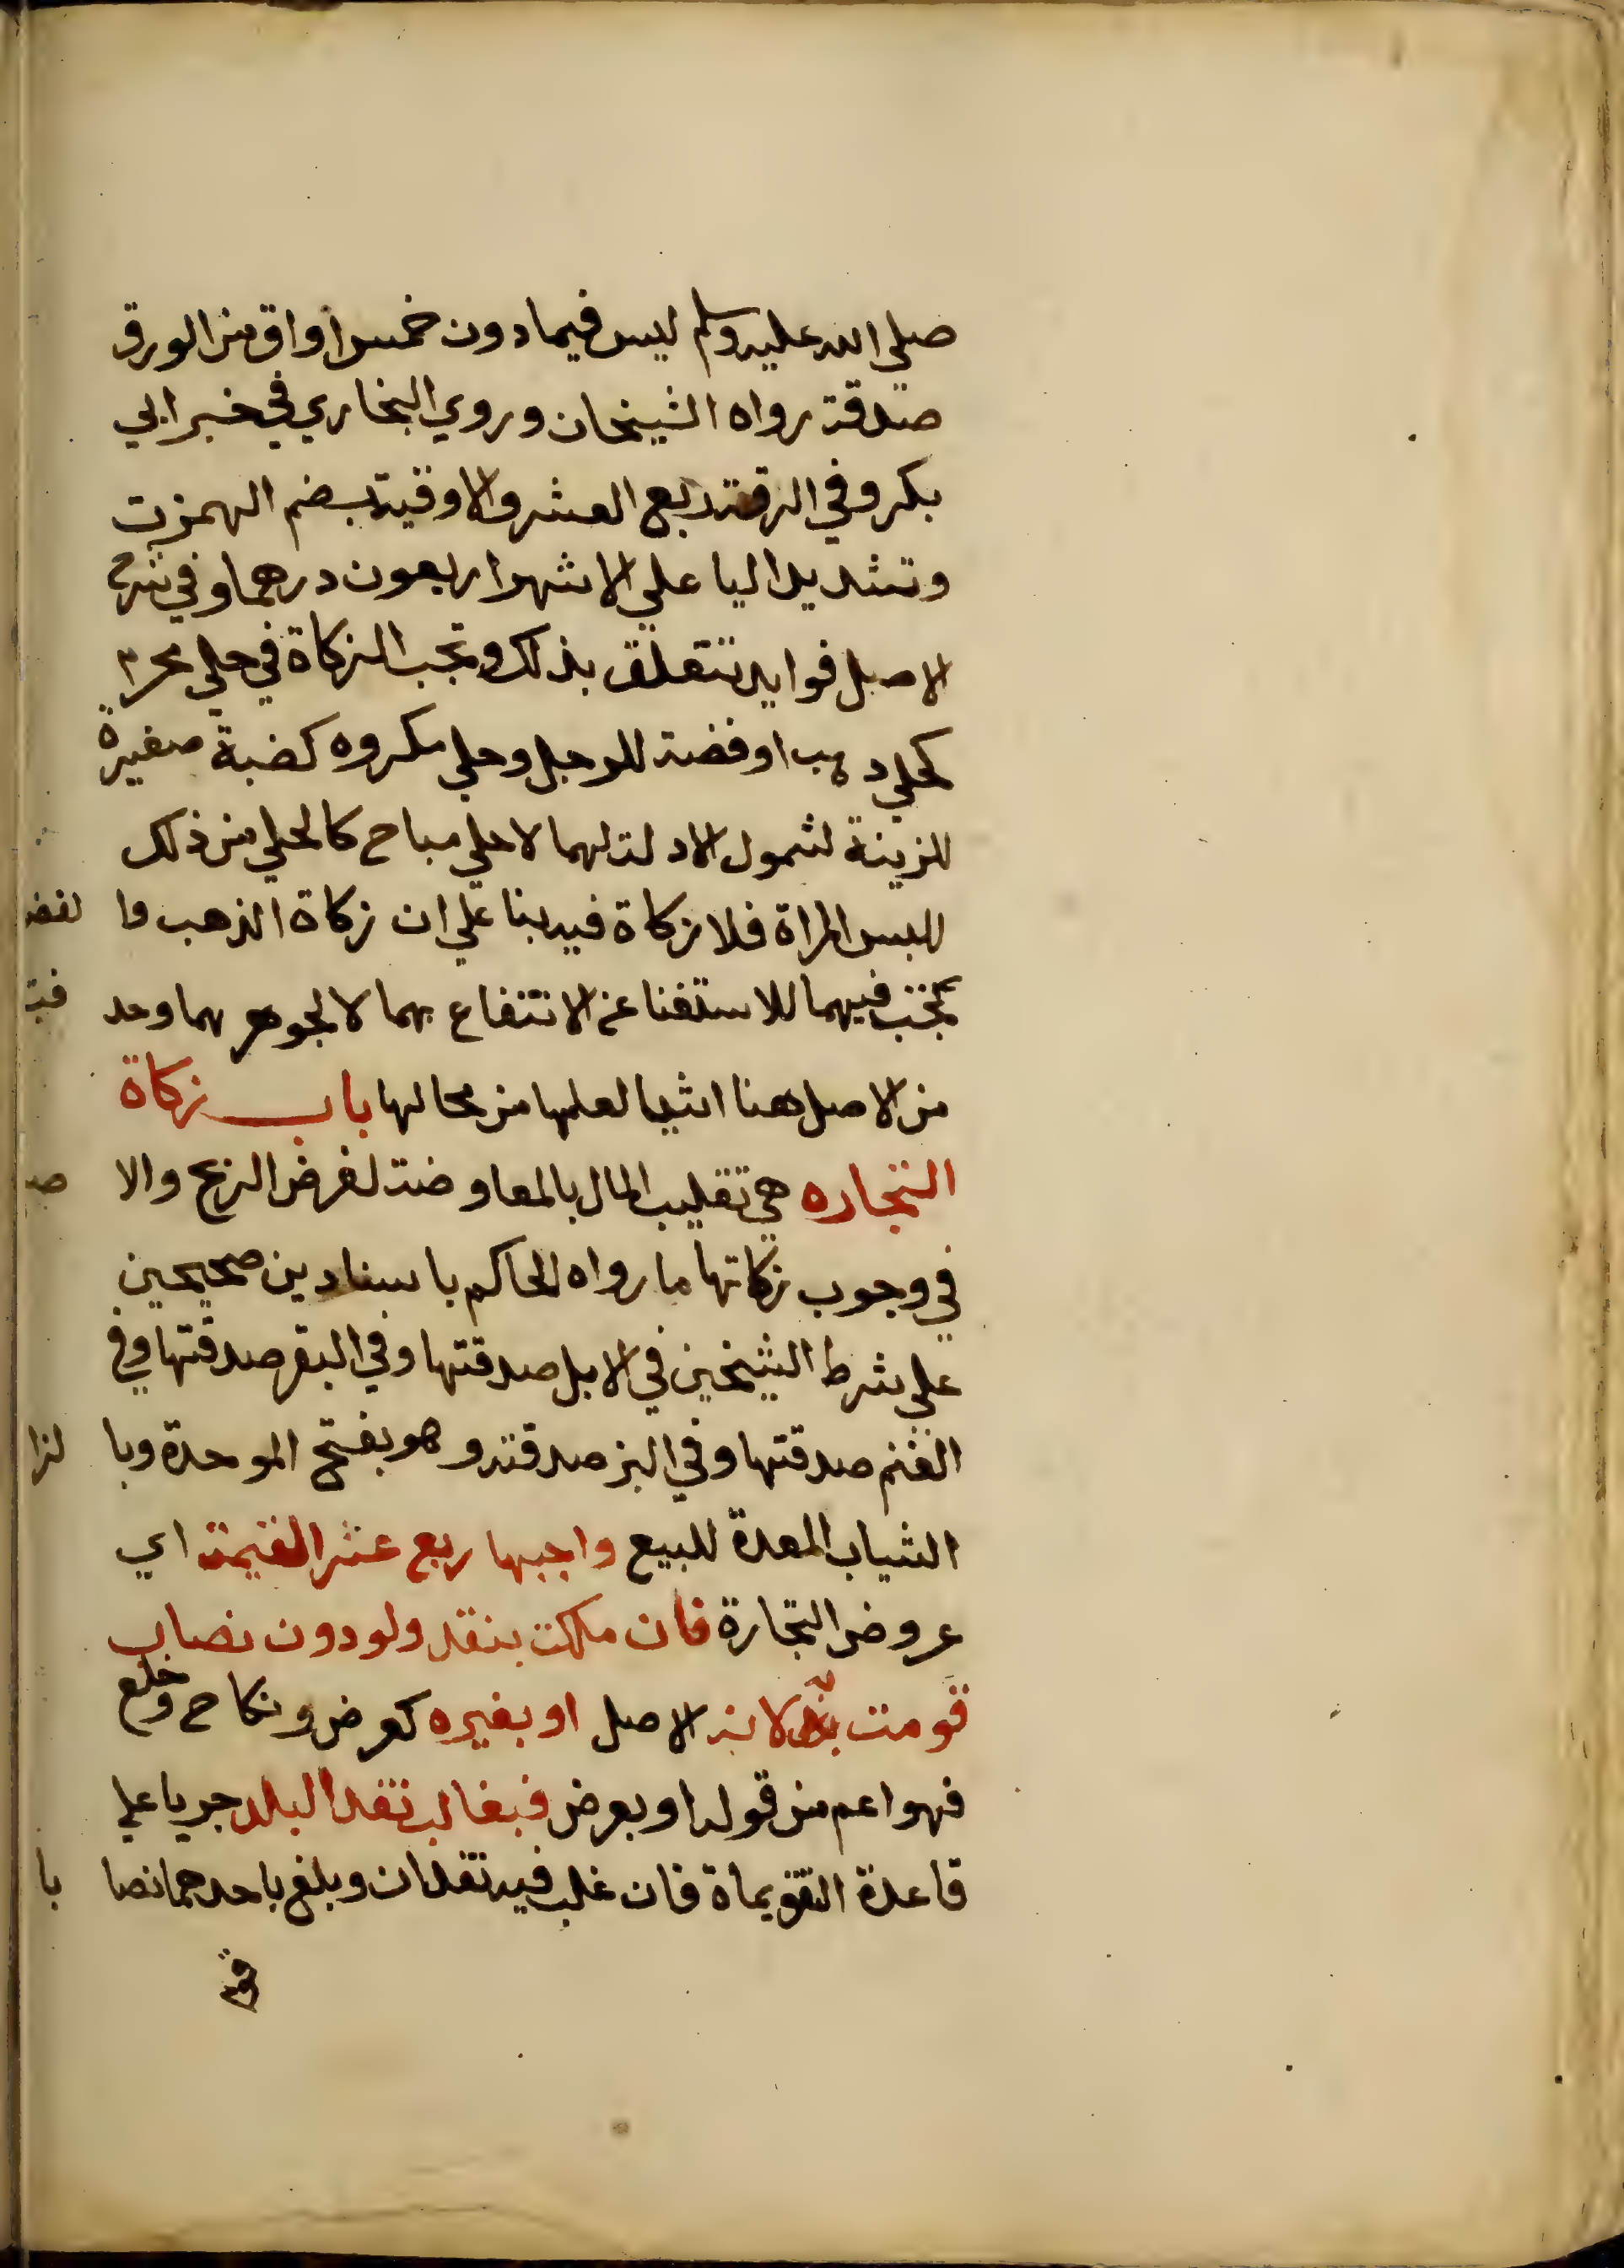 صلي الله عليه وسلم ليس فيما دون خمس اواق من الورق
صدقة رواه الشيخان وروي البخاري في خبر ابي
بكر وفي الرقة ربع العشر والاوقية بضم الهمزت
وتشديد اليا علي الاشهر اربعون درهما وفي شرح
الاصل فوايد تتعلق بذلك وتجب الزكاة في حلي محرم
كحلي دهب او فضة للرجل وحلي مكروه كضبة صغيرة
للزينة لشمول الادلة لهما لا حلي مباح كالحلي من ذلك
للبس المراة فلا زكاة فيه بنا علي ان زكاة الذهب وا لفضة
تجب فيهما للاستغنا عن الانتفاع بهما لا لجوهرهما وحد فت
من الاصل هنا اشيا لعلمها من محالها باب زكاة
التجاره هي تقليب المال بالمعاوضة لغرض الربح والا صل
في وجوب زكاتها ما رواه الحاكم باسنادين صحيحين
علي شرط الشيخين في الابل صدقتها وفي البقر صدقتها وفي
الغنم صدقتها وفي البز صدقته وهو بفتح الموحدة وبا لزا
الثياب المعدة للبيع واجبها ربع عشر القيمة اي
عروض التجارة فان ملكت بنقد ولو دون نصاب
قومت به لانه الاصل او بغيره كعرض ونكاح وخلع
فهو اعم من قوله او بعرض فبغالب نقد البلد جريا علي
قاعدة التقويماة فان غلب فيه نقدان وبلغ باحدهما نصا با